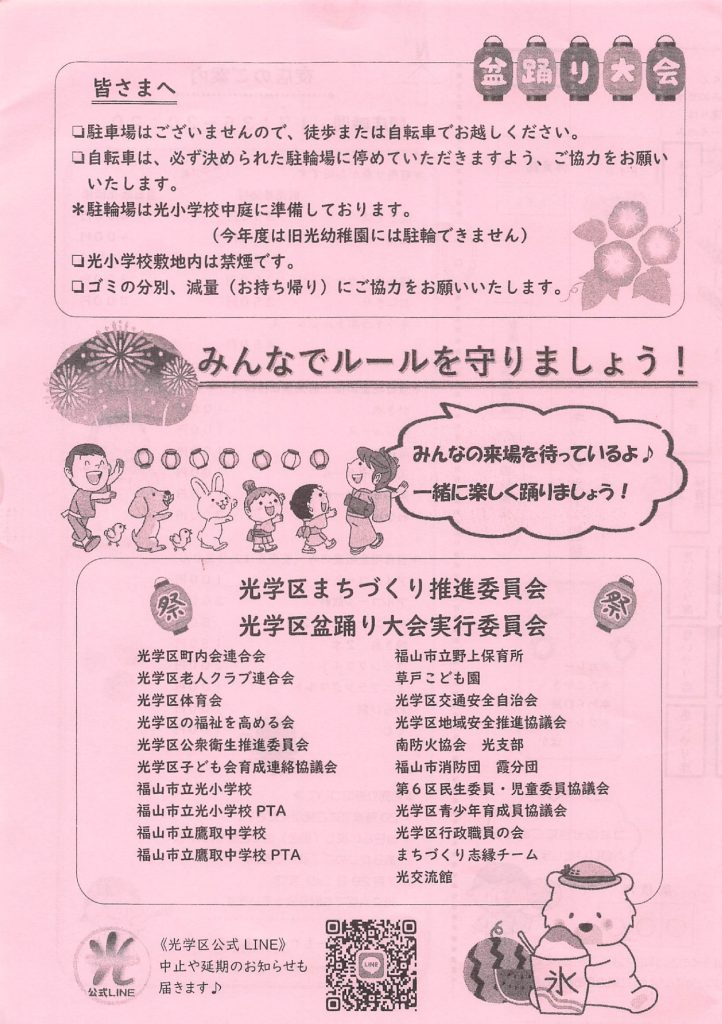 盆踊り大会
皆さまへ
❏駐車場はございませんので、徒歩または自転車でお越しください。
❏自転車は、必ず決められた駐輪場に停めていただきますよう、ご協力をお願い
いたします。
＊駐輪場は光小学校中庭に準備しております。
（今年度は旧光幼稚園には駐輪できません）
❏光小学校敷地内は禁煙です。
❏ゴミの分別、減量（お持ち帰り）にご協力をお願いいたします。
みんなでルールを守りましょう！
みんなの来場を待っているよ♪
一緒に楽しく踊りましょう！
祭
光学区まちづくり推進委員会
光学区盆踊り大会実行委員会
祭
光学区町内会連合会
光学区老人クラブ連合会
光学区体育会
光学区の福祉を高める会
光学区公衆衛生推進委員会
光学区子ども会育成連絡協議会
福山市立光小学校
福山市立光小学校PTA
福山市立鷹取中学校
福山市立鷹取中学校PTA
福山市立野上保育所
草戸こども園
光学区交通安全自治会
光学区地域安全推進協議会
南防火協会　光支部
福山市消防団　霞分団
第６区民生委員・児童委員協議会
光学区青少年育成員協議会
光学区行政職員の会
まちづくり志縁チーム
光交流館
光
公式LINE
《光学区公式LINE》
中止や延期のお知らせも
届きます♪
LINE
氷